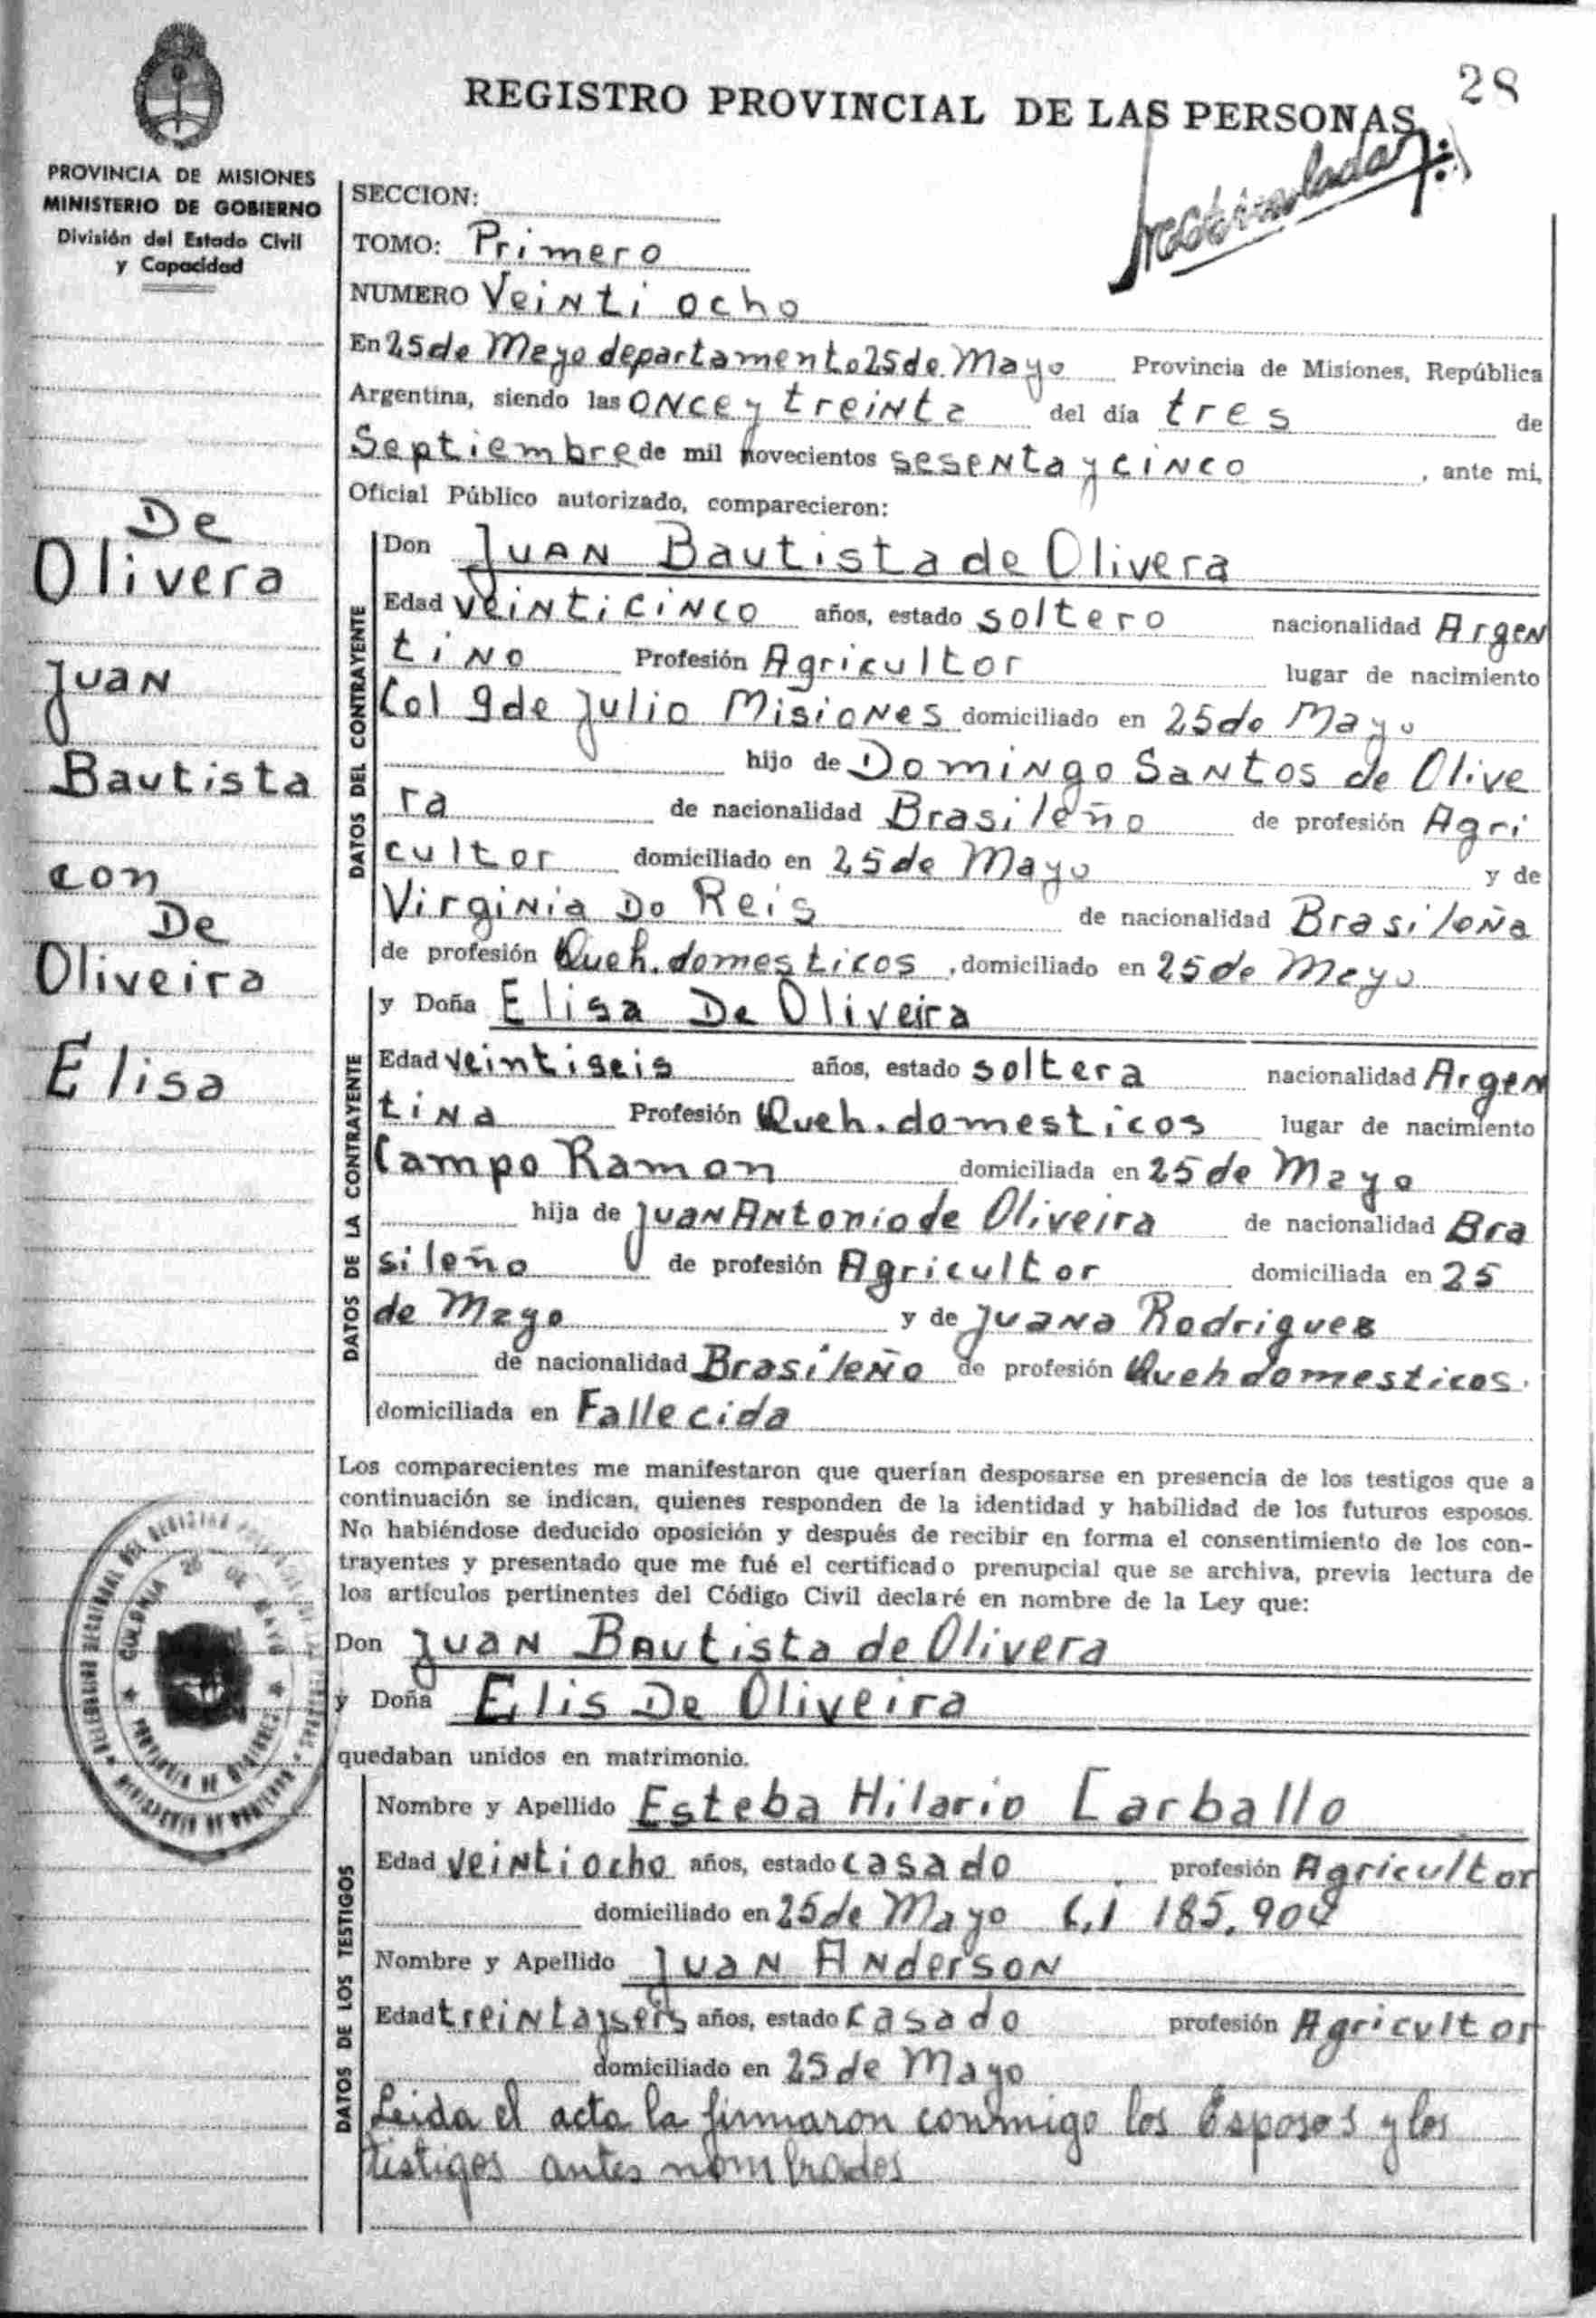 28
REGISTRO PROVINCIAL DE LAS PERSONAS
PROVINCIA DE MISIONES
MINISTERIO DE GOBIERNO
División del Estado Civil
y Capacidad
SECCION:
TOMO: Primero
NUMERO Veinti ocho
En 25 de Mayo departamento 25 de Mayo Provincia de Misiones, República
Argentina, siendo las once y treinta del día tres de
Septiembre de mil novecientos sesenta y cinco, ante mi,
Oficial Público autorizado, comparecieron:
De
Olivera
Juan
Bautista
con
De
Oliveira
Elisa
DATOS DEL CONTRAYENTE
Don Juan Bautista de Olivera
Edad veinticinco años, estado soltero nacionalidad Argen
tino Profesión Agricultor lugar de nacimiento
Col 9 de Julio Misiones domiciliado en 25 de Mayo
hijo de Domingo Santos de Olive
ra de nacionalidad Brasileño de profesión Agri
cultor domiciliado en 25 de Mayo y de
Virginia Do Reis de nacionalidad Brasileña
de profesión Queh. domesticos, domiciliado en 25 de Mayo
DATOS DE LA CONTRAYENTE
y Doña Elisa De Oliveira
Edad veintiseis años, estado soltera nacionalidad Argen
tina Profesión Queh. domesticos lugar de nacimiento
Campo Ramon domiciliada en 25 de Mayo
hija de Juan Antonio de Oliveira de nacionalidad Bra
sileño de profesión Agricultor domiciliada en 25
de Mayo y de Juana Rodrigues
de nacionalidad Brasileño de profesión Queh domesticos.
domiciliada en Fallecida
Los comparecientes me manifestaron que querían desposarse en presencia de los testigos que a
continuación se indican, quienes responden de la identidad y habilidad de los futuros esposos.
No habiéndose deducido oposición y después de recibir en forma el consentimiento de los con-
trayentes y presentado que me fué el certificado prenupcial que se archiva, previa lectura de
los artículos pertinentes del Código Civil declaré en nombre de la Ley que:
Don Juan Bautista de Olivera
y Doña Elis De Oliveira
quedaban unidos en matrimonio.
COLONIA 25 DE MAYO
PROVINCIA DE MISIONES
DATOS DE LOS TESTIGOS
Nombre y Apellido Esteba Hilario Carballo
Edad veintiocho años, estado casado profesión Agricultor
domiciliado en 25 de Mayo C.I 185.904
Nombre y Apellido Juan Anderson
Edad treinta y seis años, estado casado profesión Agricultor
domiciliado en 25 de Mayo
Leida el acta la firmaron conmigo los Esposos y los
testigos antes nombrados